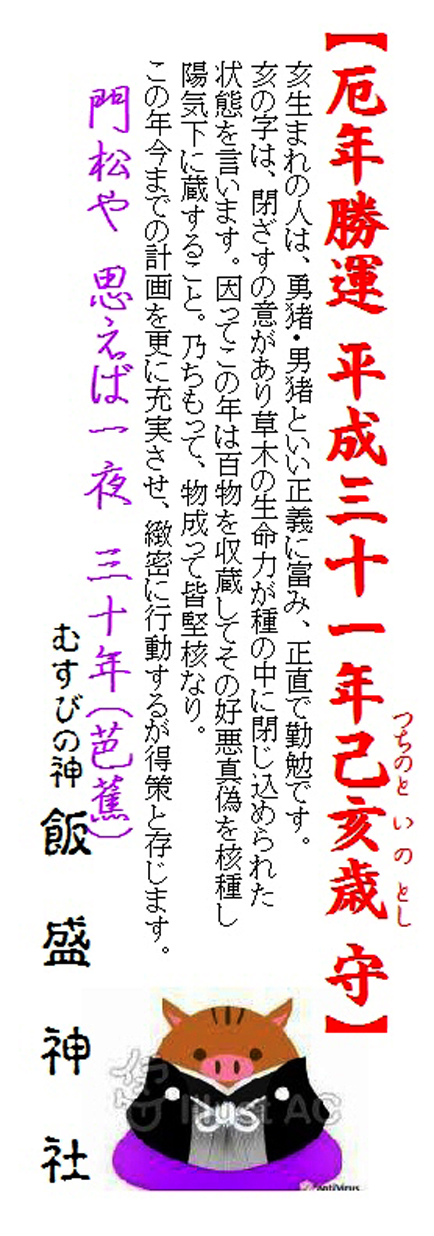 【厄年勝運 平成三十一年己亥歳 守】
つちのと い の とし
亥生まれの人は、勇猪・男猪といい正義に富み、正直で勤勉です。
亥の字は、閉ざすの意があり草木の生命力が種の中に閉じ込められた
状態を言います。因ってこの年は百物を収蔵してその好悪真偽を核種し
陽気下に蔵すること。乃ちもって、物成って皆堅核なり。
この年今までの計画を更に充実させ、緻密に行動するが得策と存じます。
門松や 思えば一夜 三十年(芭蕉)
むすびの神 飯盛神社
illust AC
antivirus